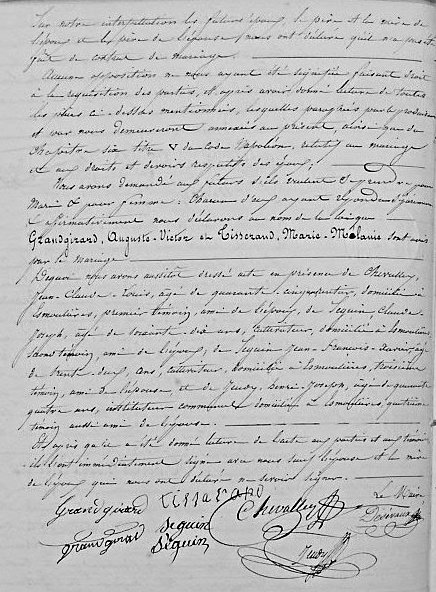 Sur notre interpellation les futurs époux, le père et la mère de
l'époux et le père de l'épouse nous ont déclaré qu'il n'a pas été
fait de contrat de mariage.
Aucune opposition ne nous ayant été signifiée faisant droit
à la réquisition des parties, et après avoir donné lecture de toutes
les pièces ci-dessus mentionnées, lesquelles paraphées par le produisant
et par nous demeureront annexées au présent, ainsi que du
chapitre six titre V du Code Napoléon, relatif au mariage
et aux droits et devoirs respectifs des époux.
Nous avons demandé aux futurs s'ils veulent se prendre pour
Mari et pour femme; chacun d'eux ayant répondu séparément
et affirmativement nous déclarons au nom de la loi que
Grandgirard, Auguste-Victor et Tisserand, Marie-Mélanie sont unis
par le mariage.
De quoi nous avons aussitôt dressé acte en présence de Chevalley,
Jean-Claude-Louis, âgé de quarante-cinq ans, domicilié à
Esmoulières, premier témoin, ami de l'époux, de Séquin Claude-
Joseph, âgé de soixante-dix ans, cultivateur, domicilié à Esmoulières
second témoin, ami de l'époux, de Séquin Jean-François-Xavier, âgé
de trente-deux ans, cultivateur, domicilié à Esmoulières, troisième
témoin, ami de l'épouse, et de Jeudy, Henri-Joseph, âgé de quarante
quatre ans, instituteur communal domicilié à Esmoulières, quatrième
témoin aussi ami de l'épouse.
Et après qu'il a été donné lecture de l'acte aux parties et aux témoins
ils l'ont immédiatement signé avec nous sauf l'épouse et la mère
de l'époux qui nous ont déclaré ne savoir signer.
Grandgirard Tissarand Chevalley le Maire
Grandgirard Séquin Séquin Jeudy